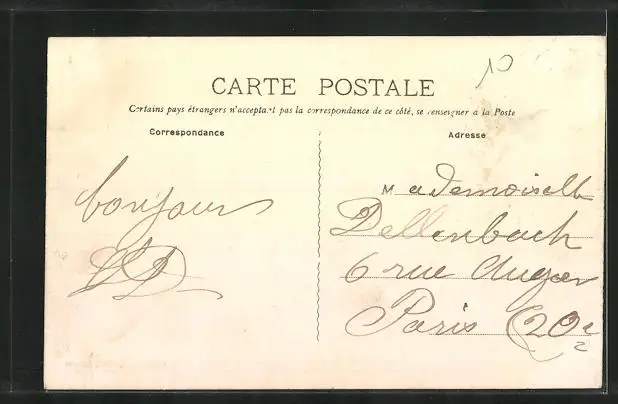 10
CARTE POSTALE
Certains pays étrangers n'acceptant pas la correspondance de ce côté, se renseigner à la Poste
Correspondance
Adresse
bonjour
Mademoiselle
Dellenbach
6 rue Auger
Paris (20e